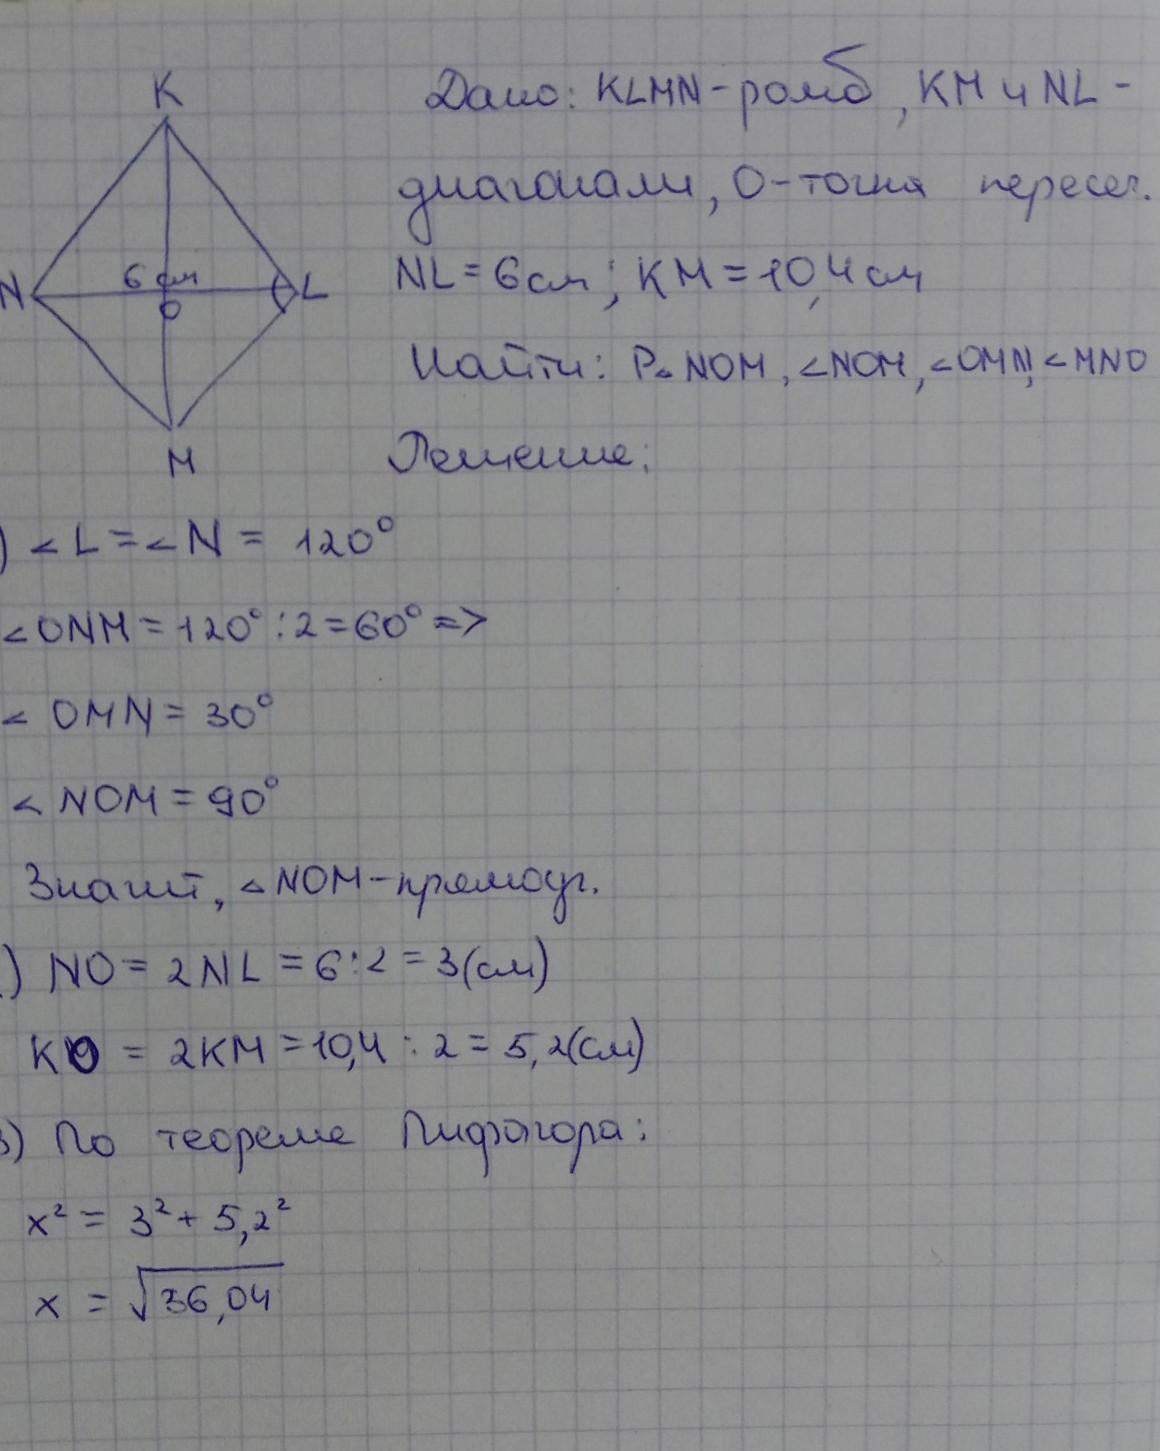 K
Дано: KLMN-ромб, KM и NL-
диагонали, O-точка пересеч.
N 6 см L
O
NL = 6 см; KM = 10,4 см
Найти: P△NOM, ∠NOM, ∠OMN, ∠MNO
M
Решение:
) ∠L = ∠N = 120°
∠ONM = 120° : 2 = 60° =>
∠OMN = 30°
∠NOM = 90°
Значит, △NOM-прямоуг.
) NO = 2NL = 6:2 = 3(см)
KO = 2KM = 10,4 : 2 = 5,2(см)
3) По теореме Пифагора:
x² = 3² + 5,2²
x = √36,04